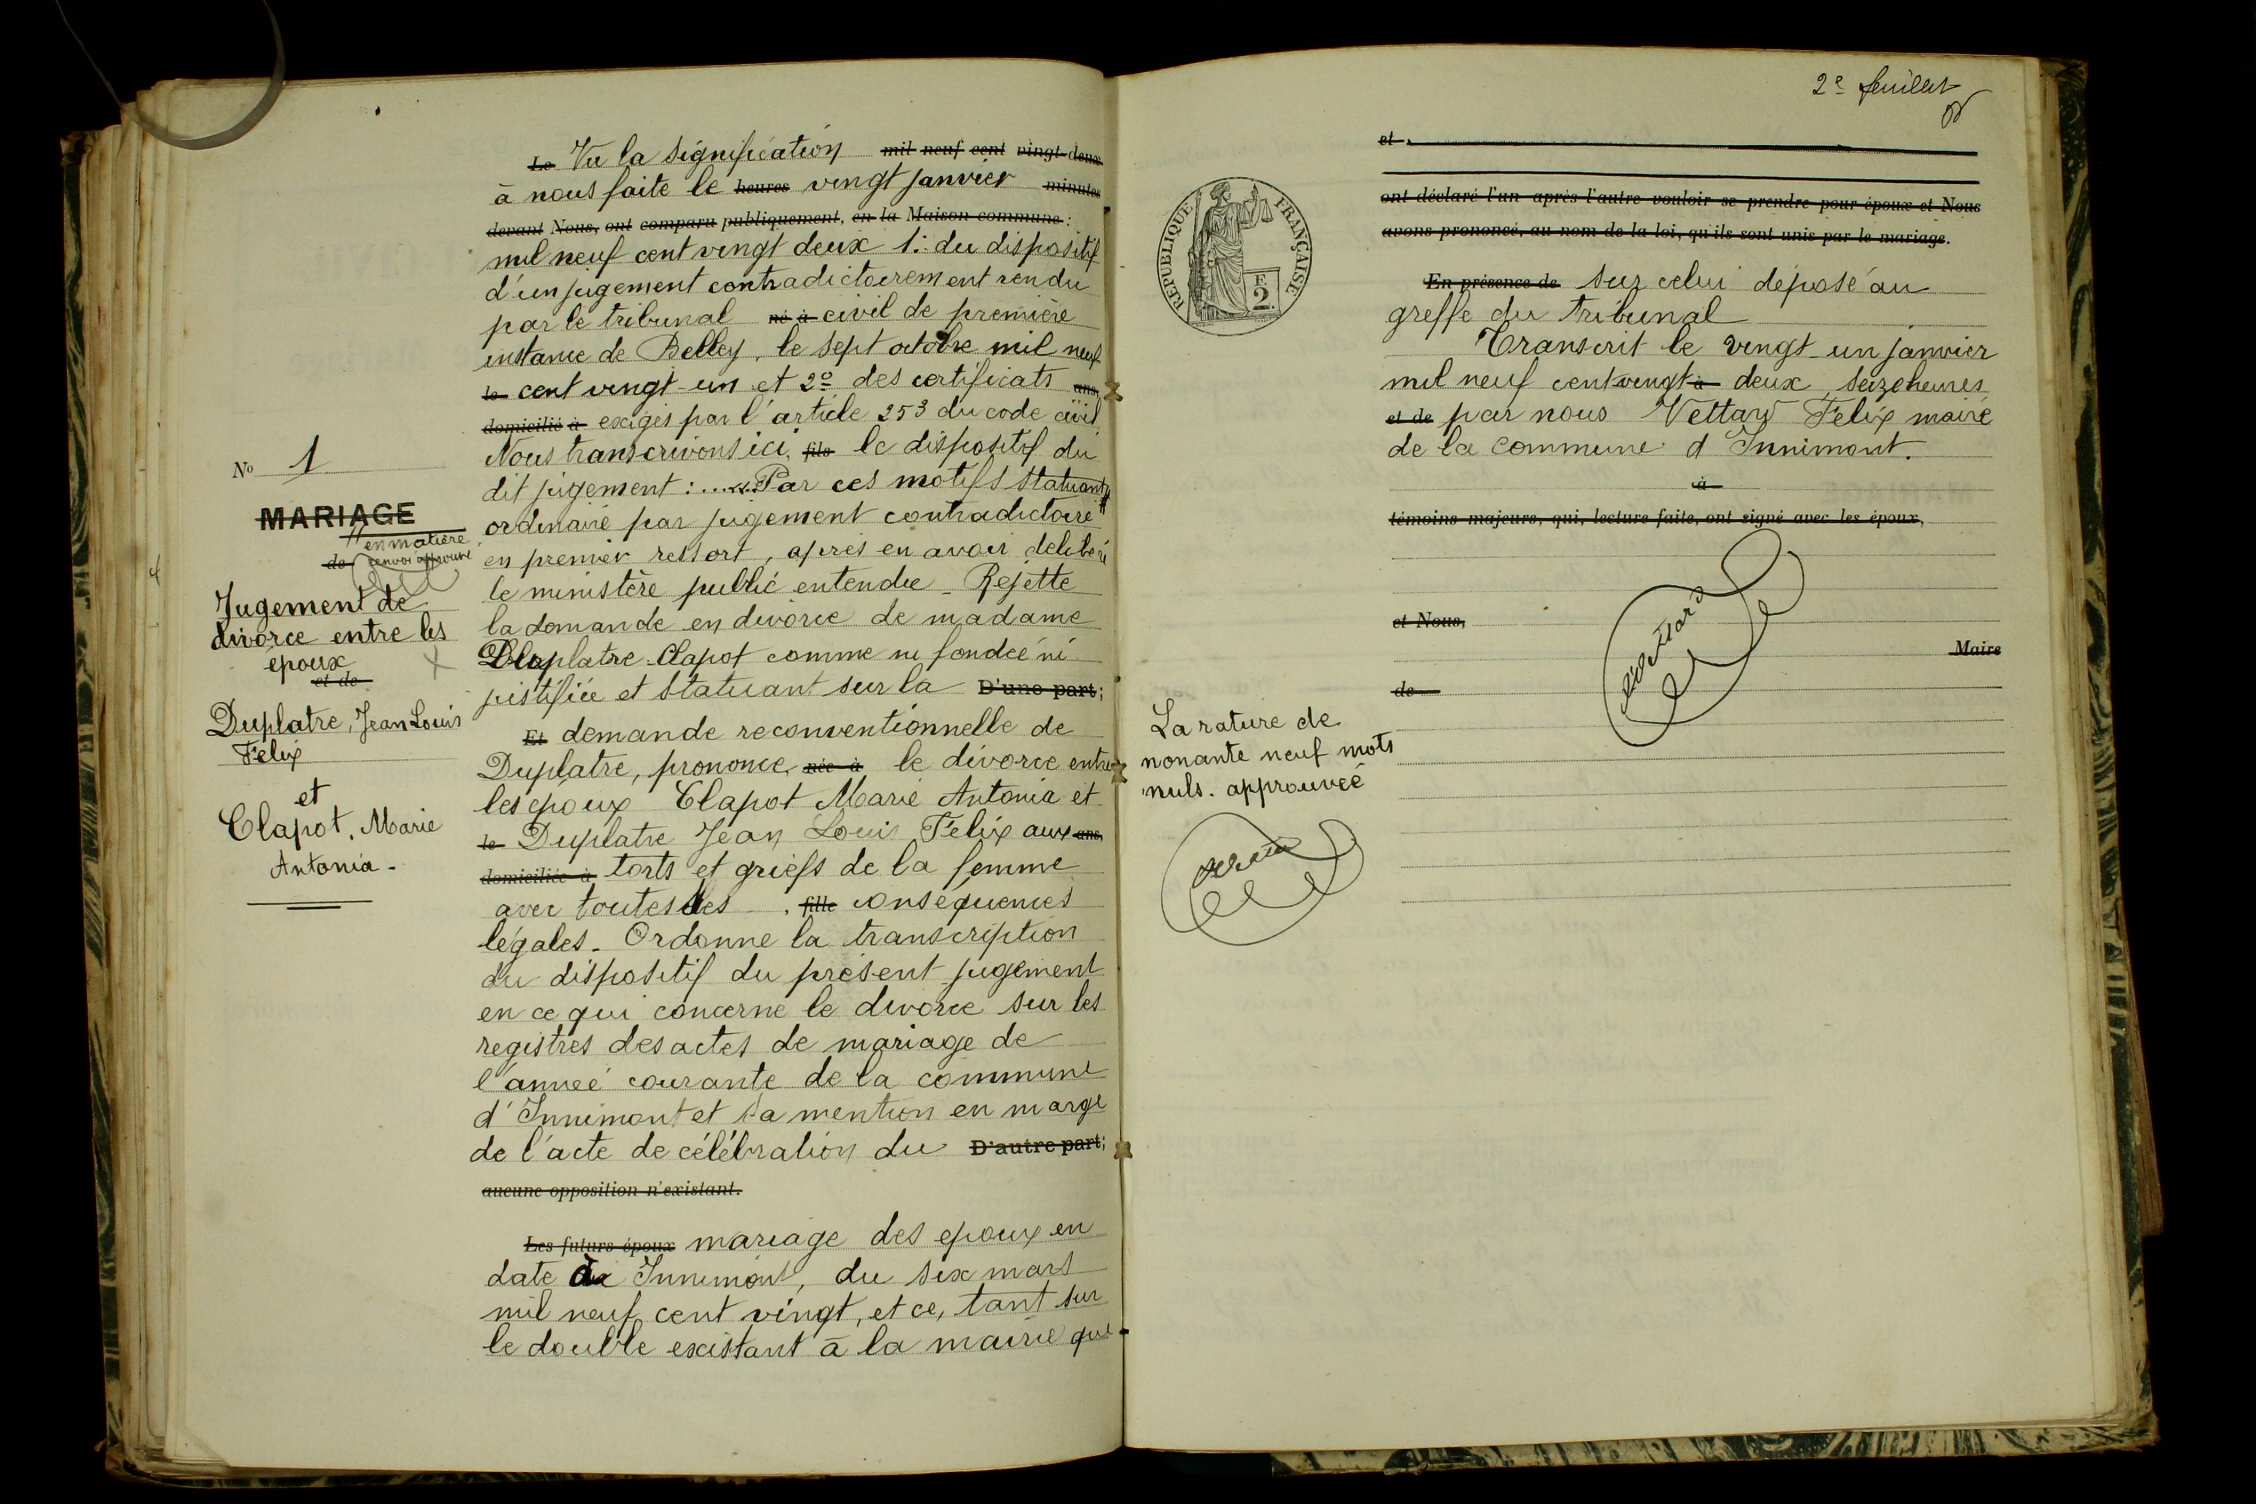 N° 1
MARIAGE
en matière
renvoi approuvé
de
Jugement de
divorce entre les
époux
et de
Duplatre, Jean Louis
Felix
et
Clapot, Marie
Antonia -
Le Vu la signification mil neuf cent vingt-deux
à nous faite le heures vingt janvier minutes
devant Nous, ont comparu publiquement, en la Maison commune :
mil neuf cent vingt deux 1: du dispositif
d'un jugement contradictoirement rendu
par le tribunal né à civil de première
instance de Belley, le sept octobre mil neuf
le cent vingt-un et 2º des certificats ans,
domicilié à exigés par l'article 253 du code civil
Nous transcrivons ici, fils le dispositif du
dit jugement : ..... « Par ces motifs statuant
ordinaire par jugement contradictoire "
en premier ressort, après en avoir delibéré
le ministère public entendu - Rejette
la demande en divorce de madame
Duplatre - Clapot comme ni fondée ni
justifiée et statuant sur la D'une part;
Et demande reconventionnelle de
Duplatre, prononce, née à le divorce entre
les époux Clapot Marie Antonia et
le Duplatre Jean Louis Felix aux ans,
domiciliée à torts et griefs de la femme
avec toutes les , fille conséquences
légales - Ordonne la transcription
du dispositif du présent jugement
en ce qui concerne le divorce sur les
registres des actes de mariage de
l'année courante de la commune
d'Innimont et la mention en marge
de l'acte de célébration du D'autre part;
aucune opposition n'existant.
Les futurs époux mariage des epoux en
date à Innimont, du six mars
mil neuf cent vingt, et ce, tant sur
le double existant à la mairie que
2e feuillet
RÉPUBLIQUE FRANÇAISE
F
2
et
ont déclaré l'un après l'autre vouloir se prendre pour époux et Nous
avons prononcé, au nom de la loi, qu'ils sont unis par le mariage.
En présence de sur celui déposé au
greffe du Tribunal
Transcrit le vingt un janvier
mil neuf cent vingt à deux seize heures
et de par nous Vettard Felix maire
de la commune d'Innimont.
à
témoins majeurs, qui, lecture faite, ont signé avec les époux,
et Nous,
Vettard
Maire
de
La rature de
nonante neuf mots
nuls. approuvée